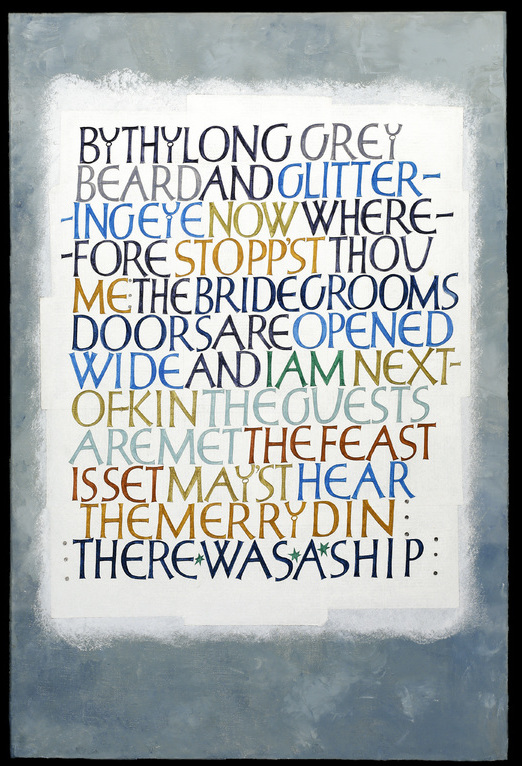 BYTHYLONG GREY
BEARDANDGLITTER-
-INGEYENOWWHERE-
-FORESTOPP'STTHOU
ME:THEBRIDEGROOMS
DOORSAREOPENED
WIDEANDIAMNEXT-
OFKINTHEGUESTS
AREMETTHEFEAST
ISSETMAY'STHEAR
THEMERRYDIN:
:THERE*WAS*A*SHIP: